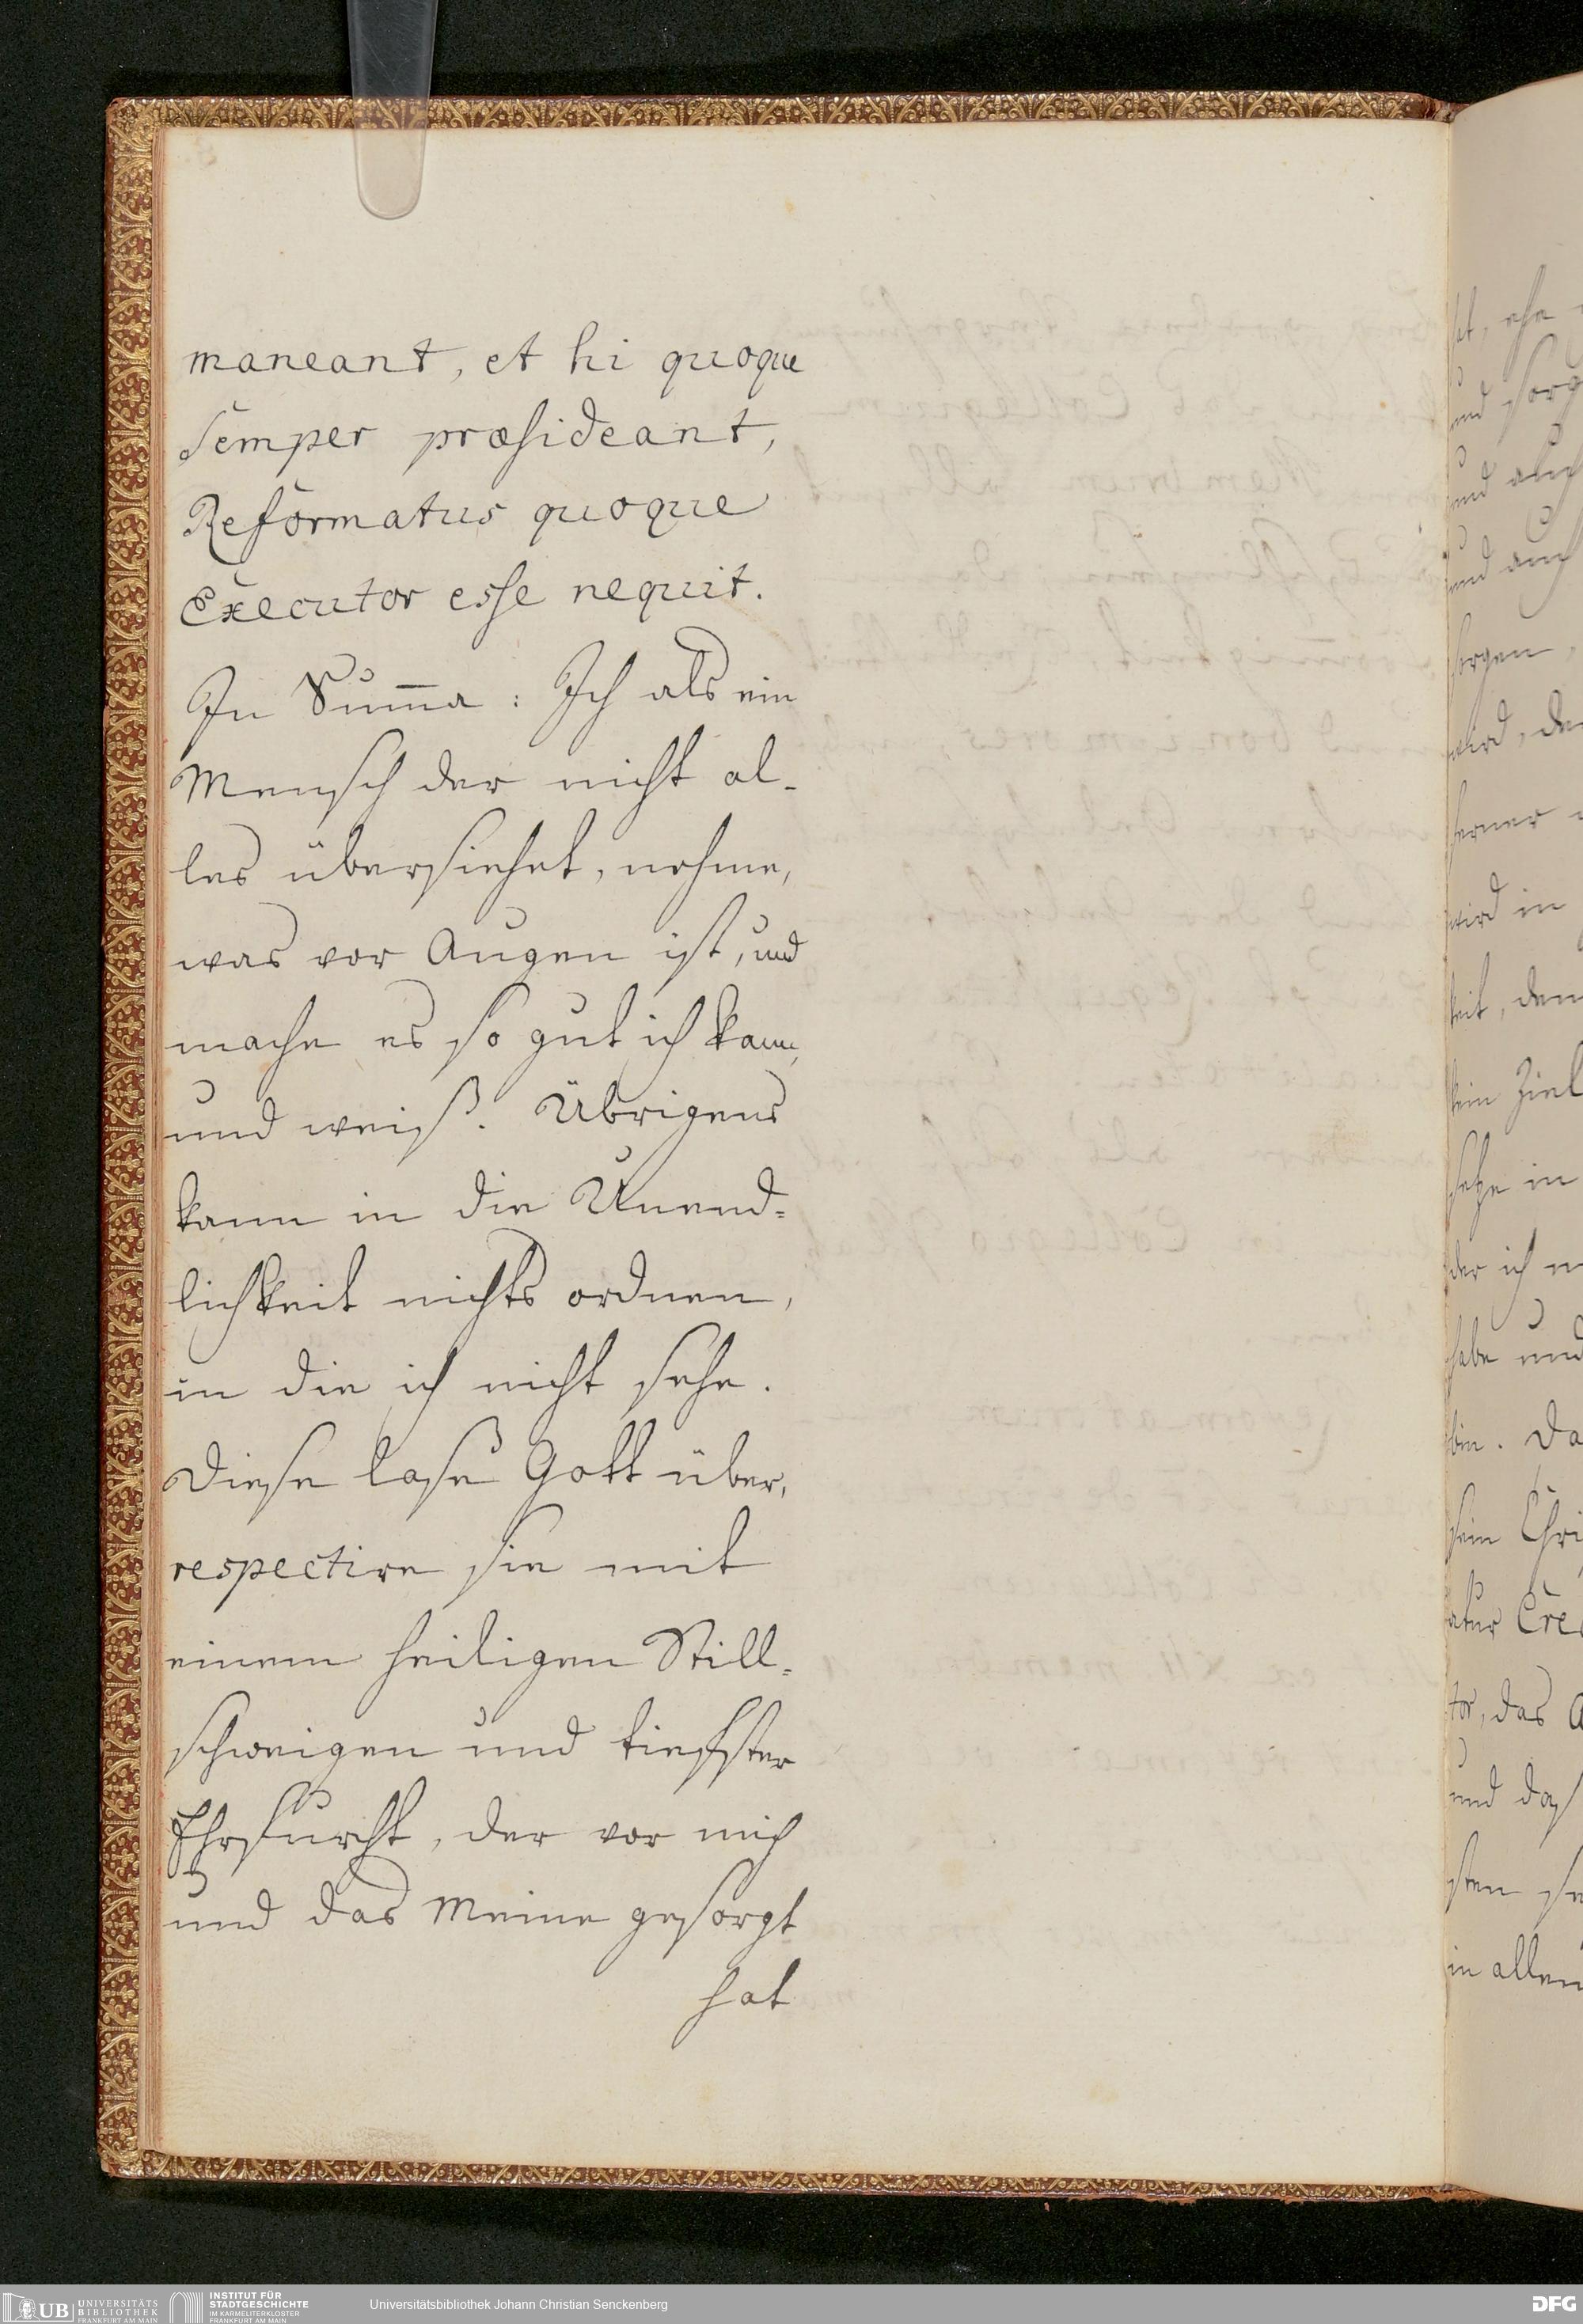 maneant, et hi quoque
Semper præsideant,
Reformatus quoque
Executor esse nequit.
In Sum̄a: Ich als ein
Mensch der nicht al-
les übersiehet, nehme,
was vor Augen ist, und
mache es so gut ich kann,
und weiß. Übrigens
kann in die Unend=
lichkeit nichts ordnen,
in die ich nicht sehe.
Diese lase Gott über,
respectire sie mit
einem heiligen Still=
schweigen und tiefster
Ehrfurcht, der vor mich
und das Meine gesorgt
hat
und
und auch
und auch
sorgen,
wird, de
ferner
wird in
keit, dem
kein Ziel
setze in
der ich
habe und
bin. Da
sein
tor, das
und das
in allen
UB UNIVERSITÄTS
BIBLIOTHEK
FRANKFURT AM MAIN
INSTITUT FÜR
STADTGESCHICHTE
IM KARMELITERKLOSTER
FRANKFURT AM MAIN
Universitätsbibliothek Johann Christian Senckenberg
DFG